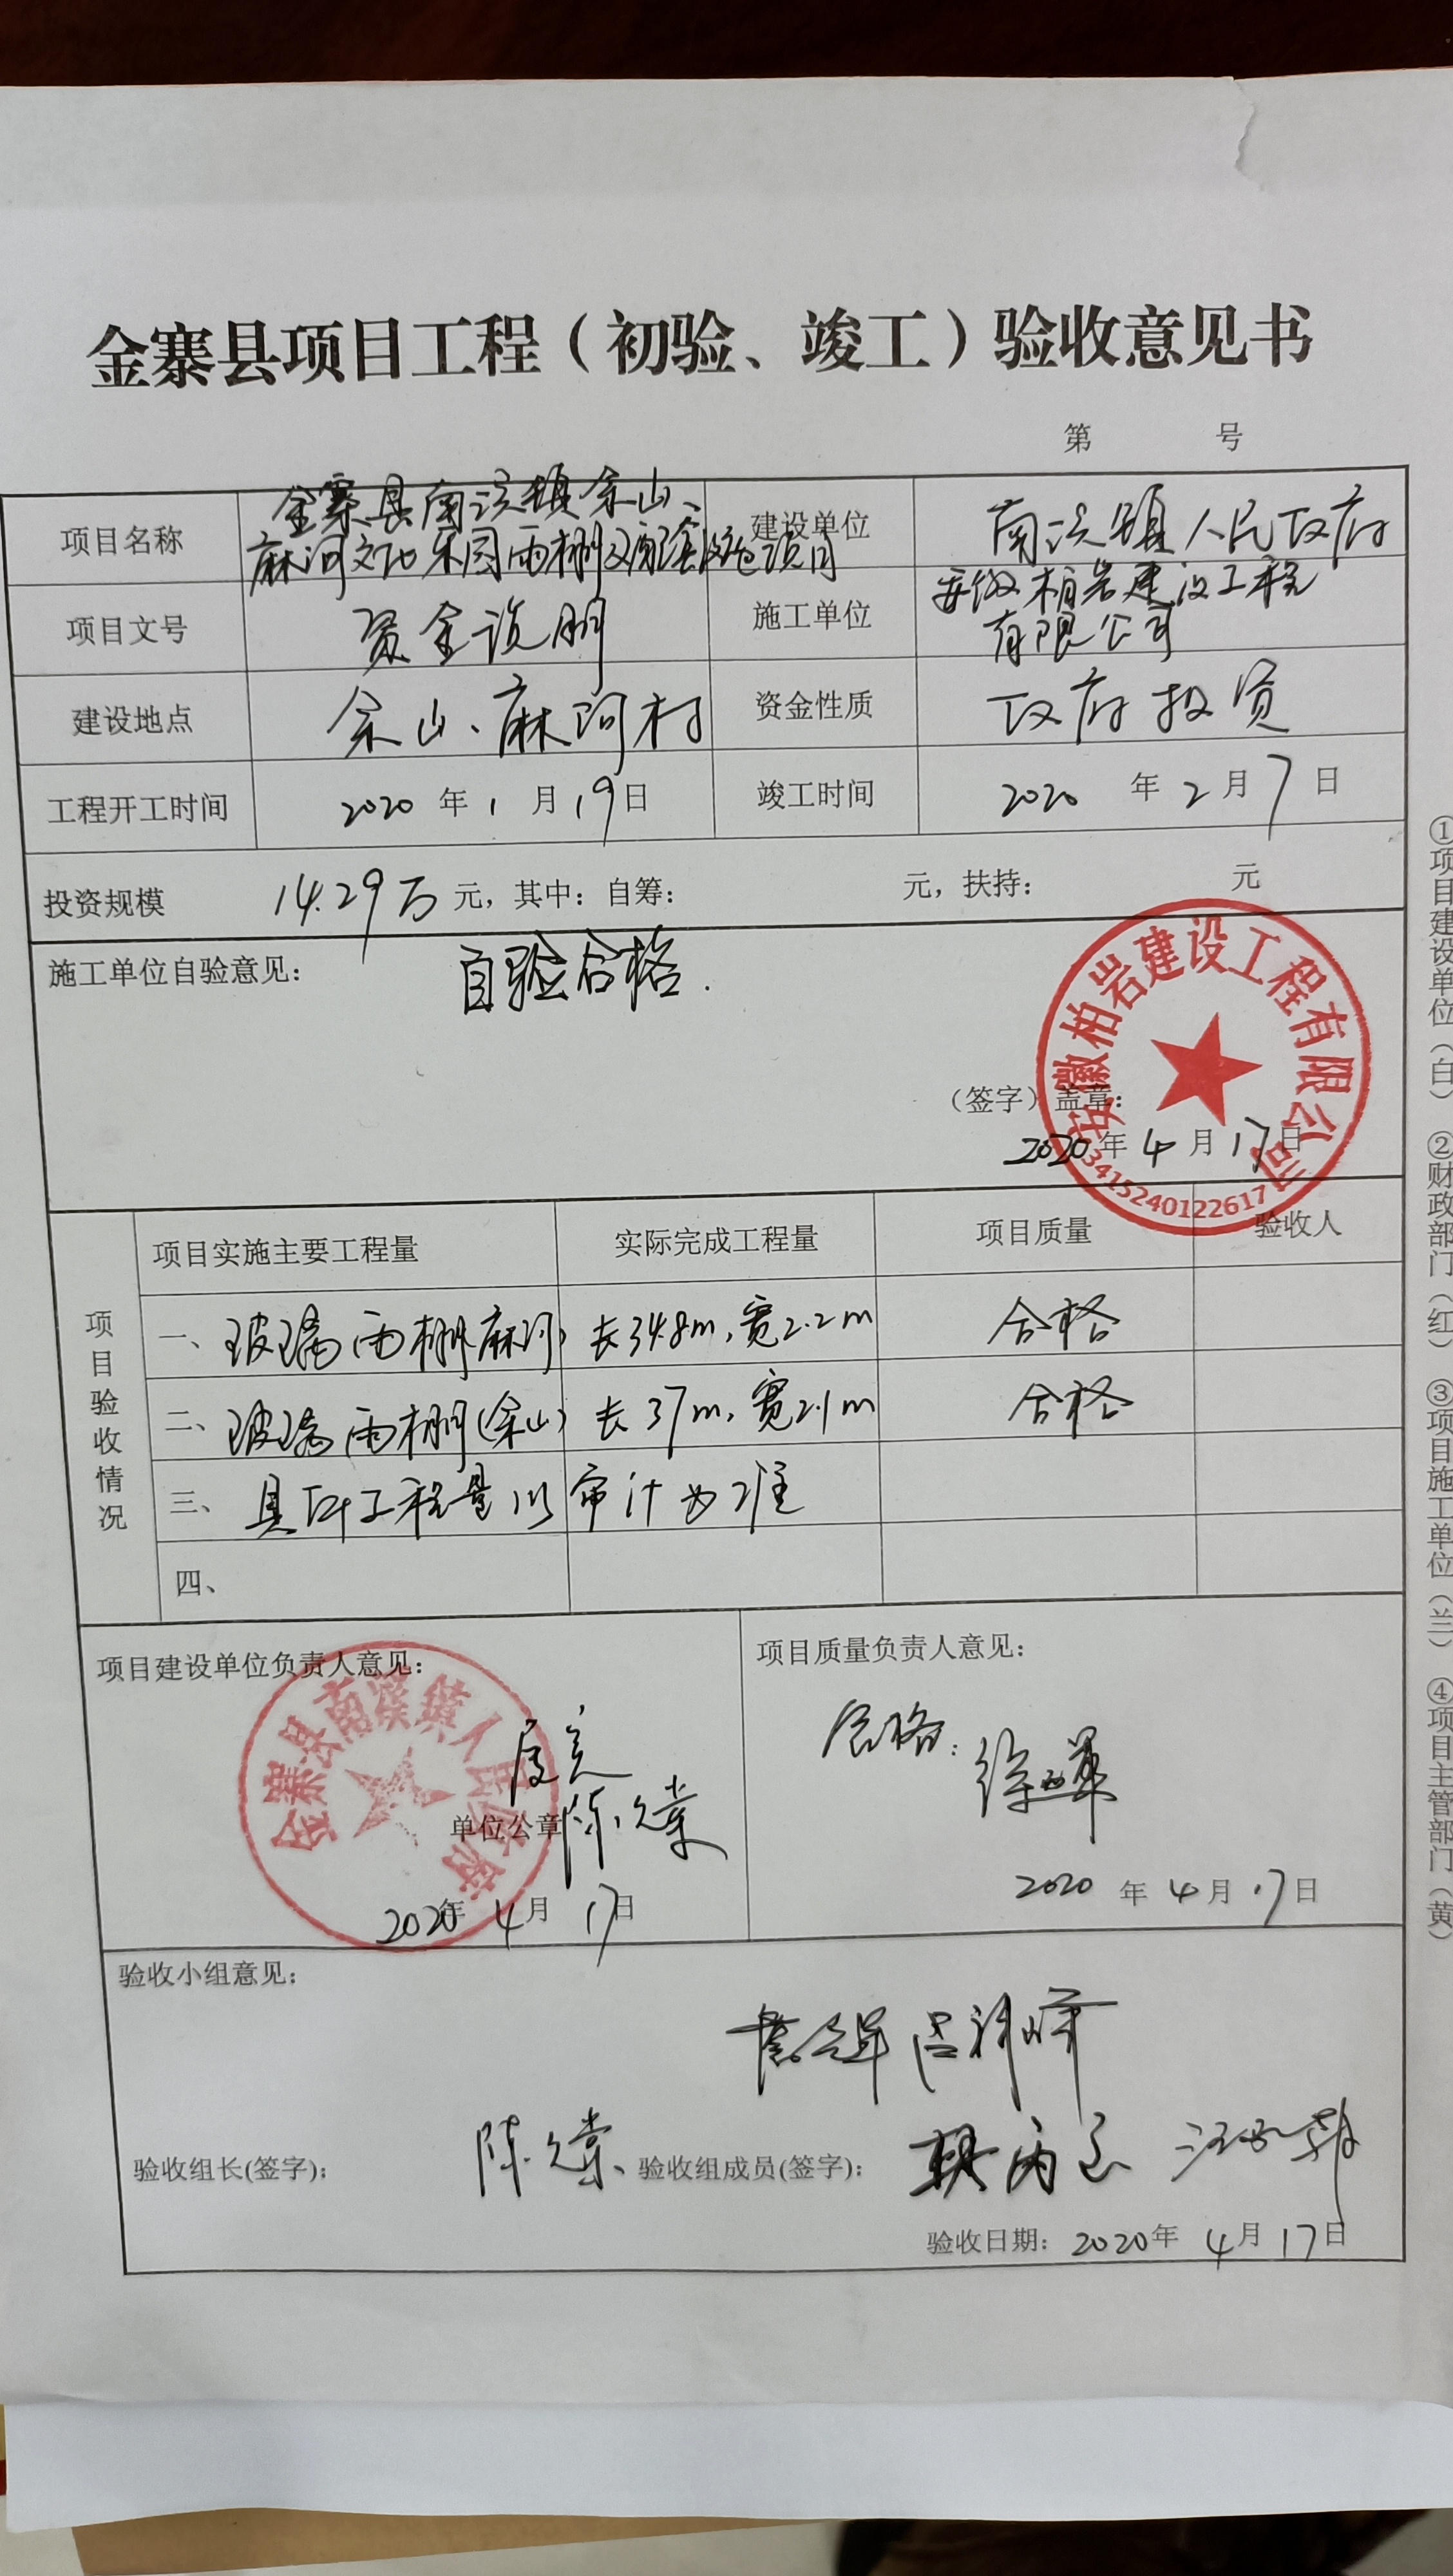 金寨县项目工程（初验、竣工）验收意见书
第 号
项目名称 金寨县南溪镇余山、
麻河文化乐园雨棚及配套设施项目
建设单位 南溪镇人民政府
项目文号 资金说明
施工单位 安徽柏岩建设工程
有限公司
建设地点 余山、麻河村 资金性质 政府投资
工程开工时间 2020 年 1 月 19 日 竣工时间 2020 年 2 月 7 日
投资规模 14.29万 元，其中：自筹： 元，扶持： 元
施工单位自验意见： 自验合格.
安徽柏岩建设工程有限公司
3415240122617
（签字）盖章：
2020 年 4 月 17 日
项目验收情况
项目实施主要工程量 实际完成工程量 项目质量 验收人
一、玻璃雨棚麻河 长34.8m，宽2.2m 合格
二、玻璃雨棚（余山） 长37m，宽2.1m 合格
三、具体工程量以审计为准
四、
项目建设单位负责人意见：
金寨县南溪镇人民政府
单位公章
2020年 4 月 17日
项目质量负责人意见：
合格
2020 年 4 月 17日
验收小组意见：
验收组长(签字)： 验收组成员(签字)：
验收日期：2020年 4月17日
①项目建设单位（白） ②财政部门（红） ③项目施工单位（兰） ④项目主管部门（黄）